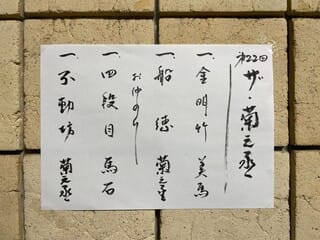 第22回
ザ・菊之丞
一、金明竹 美馬
一、船徳 菊之丞
お仲入り
一、四段目 馬石
一、不動坊 菊之丞